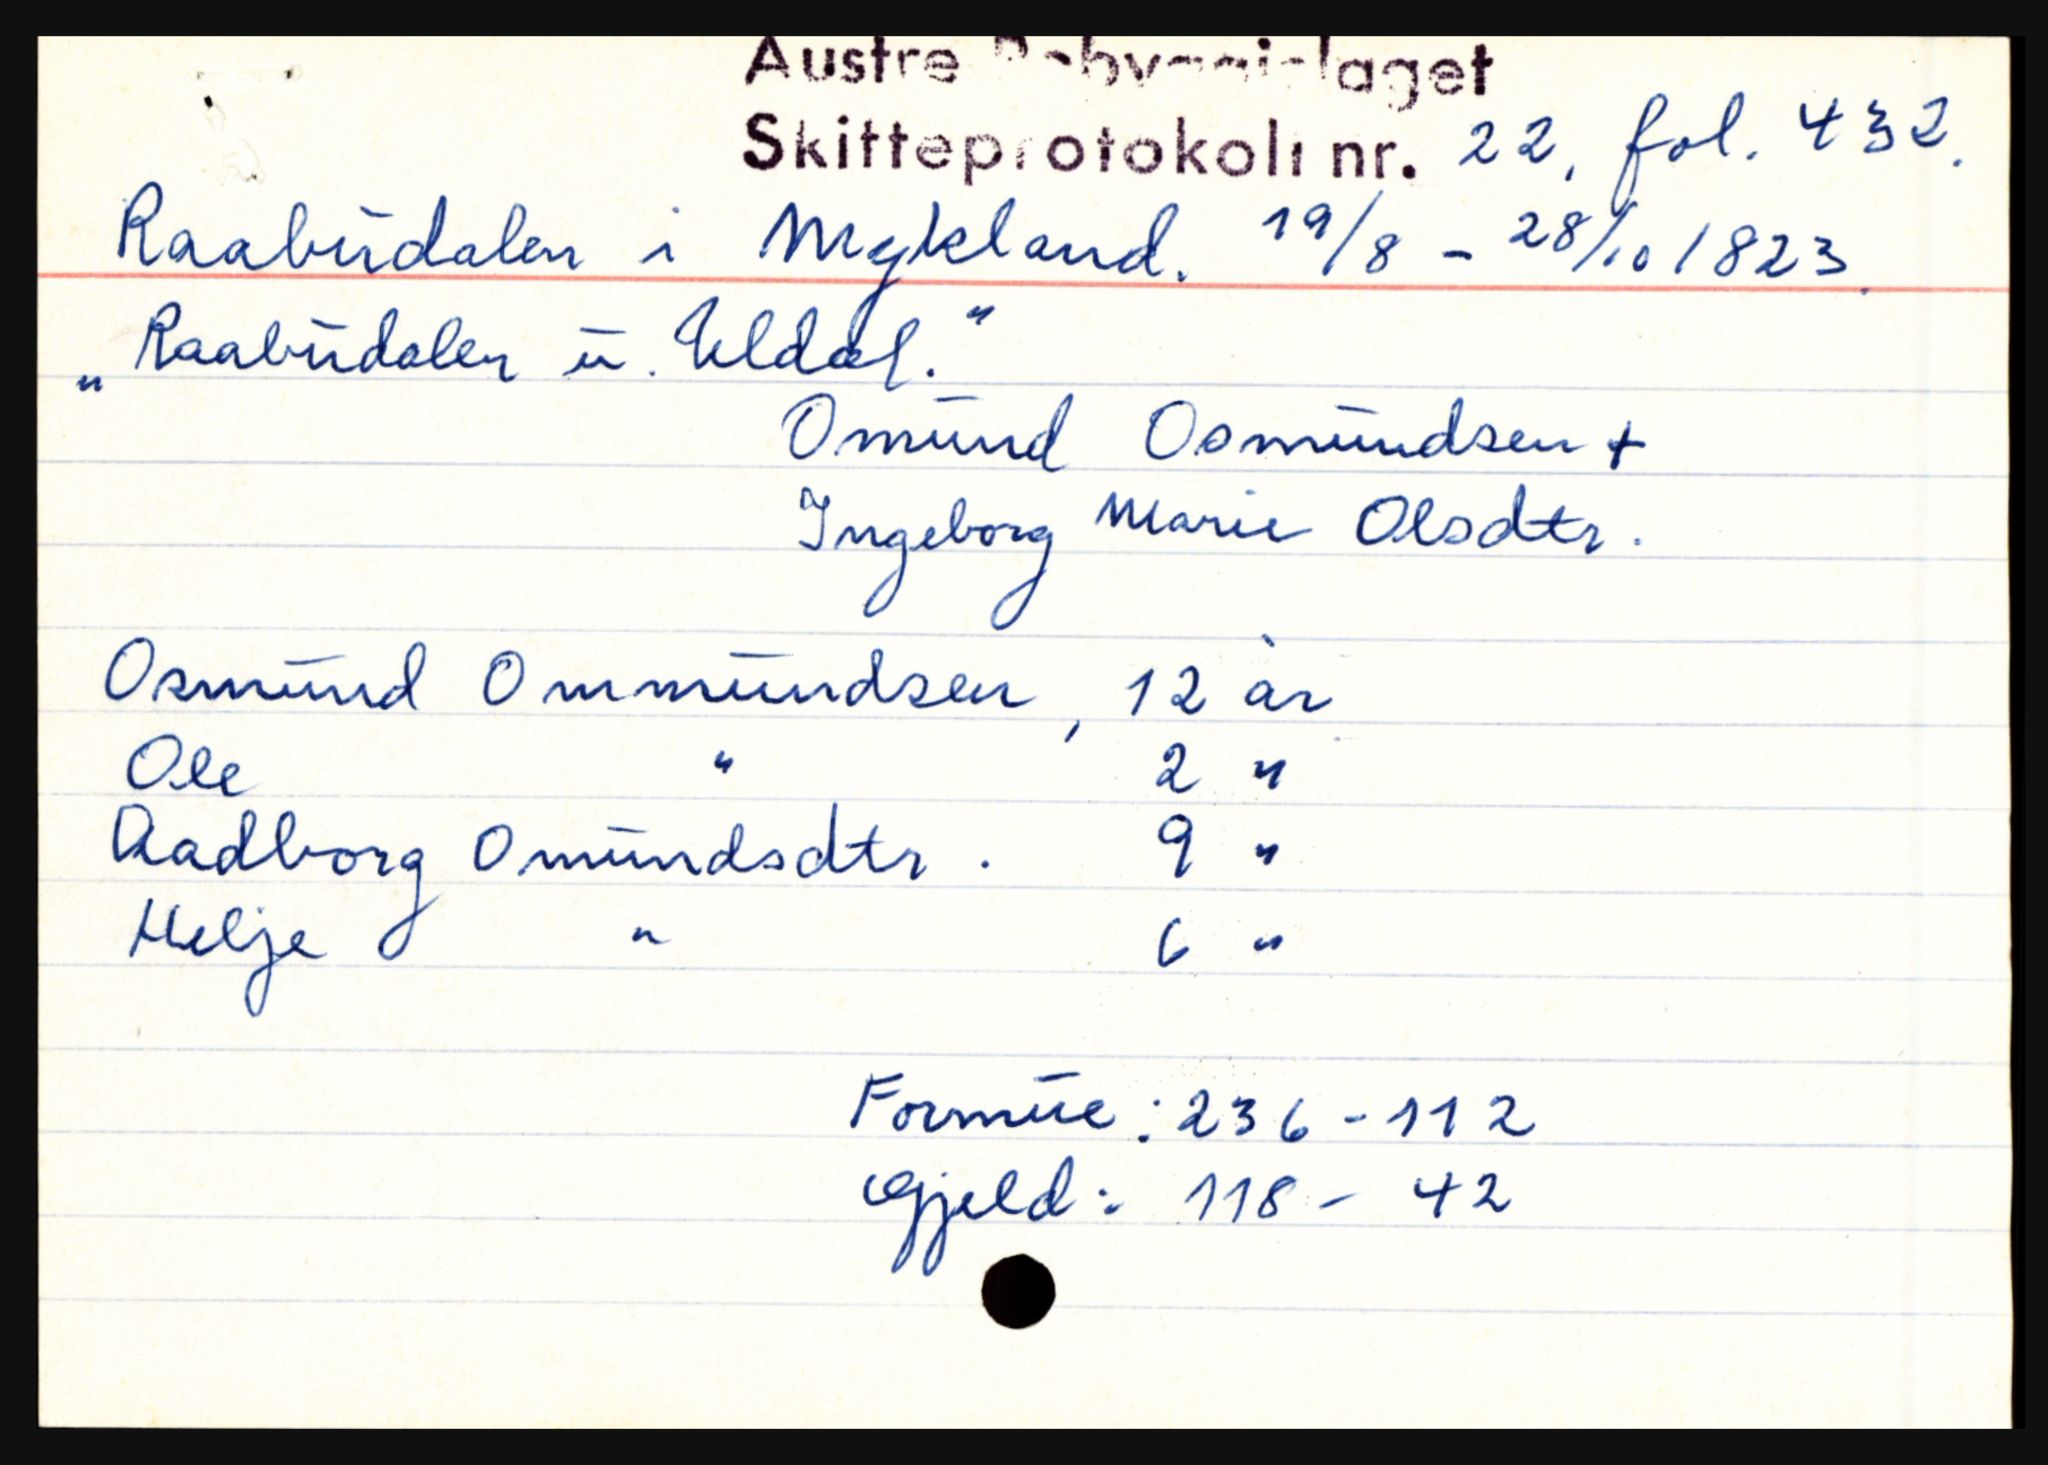 Austre Robyggjelaget
Skifteprotokoll nr. 22, fol. 432.
Raabudalen i Mykland. 19/8 - 28/10 1823.
„Raabudalen u. Uldal."
Omund Osmundsen +
Ingeborg Marie Olsdtr.
Osmund Ommundsen, 12 år
Ole " 2 "
Aadborg Omundsdtr. 9 "
Helje " 6 "
Formue: 236 - 112
Gjeld: 118 - 42